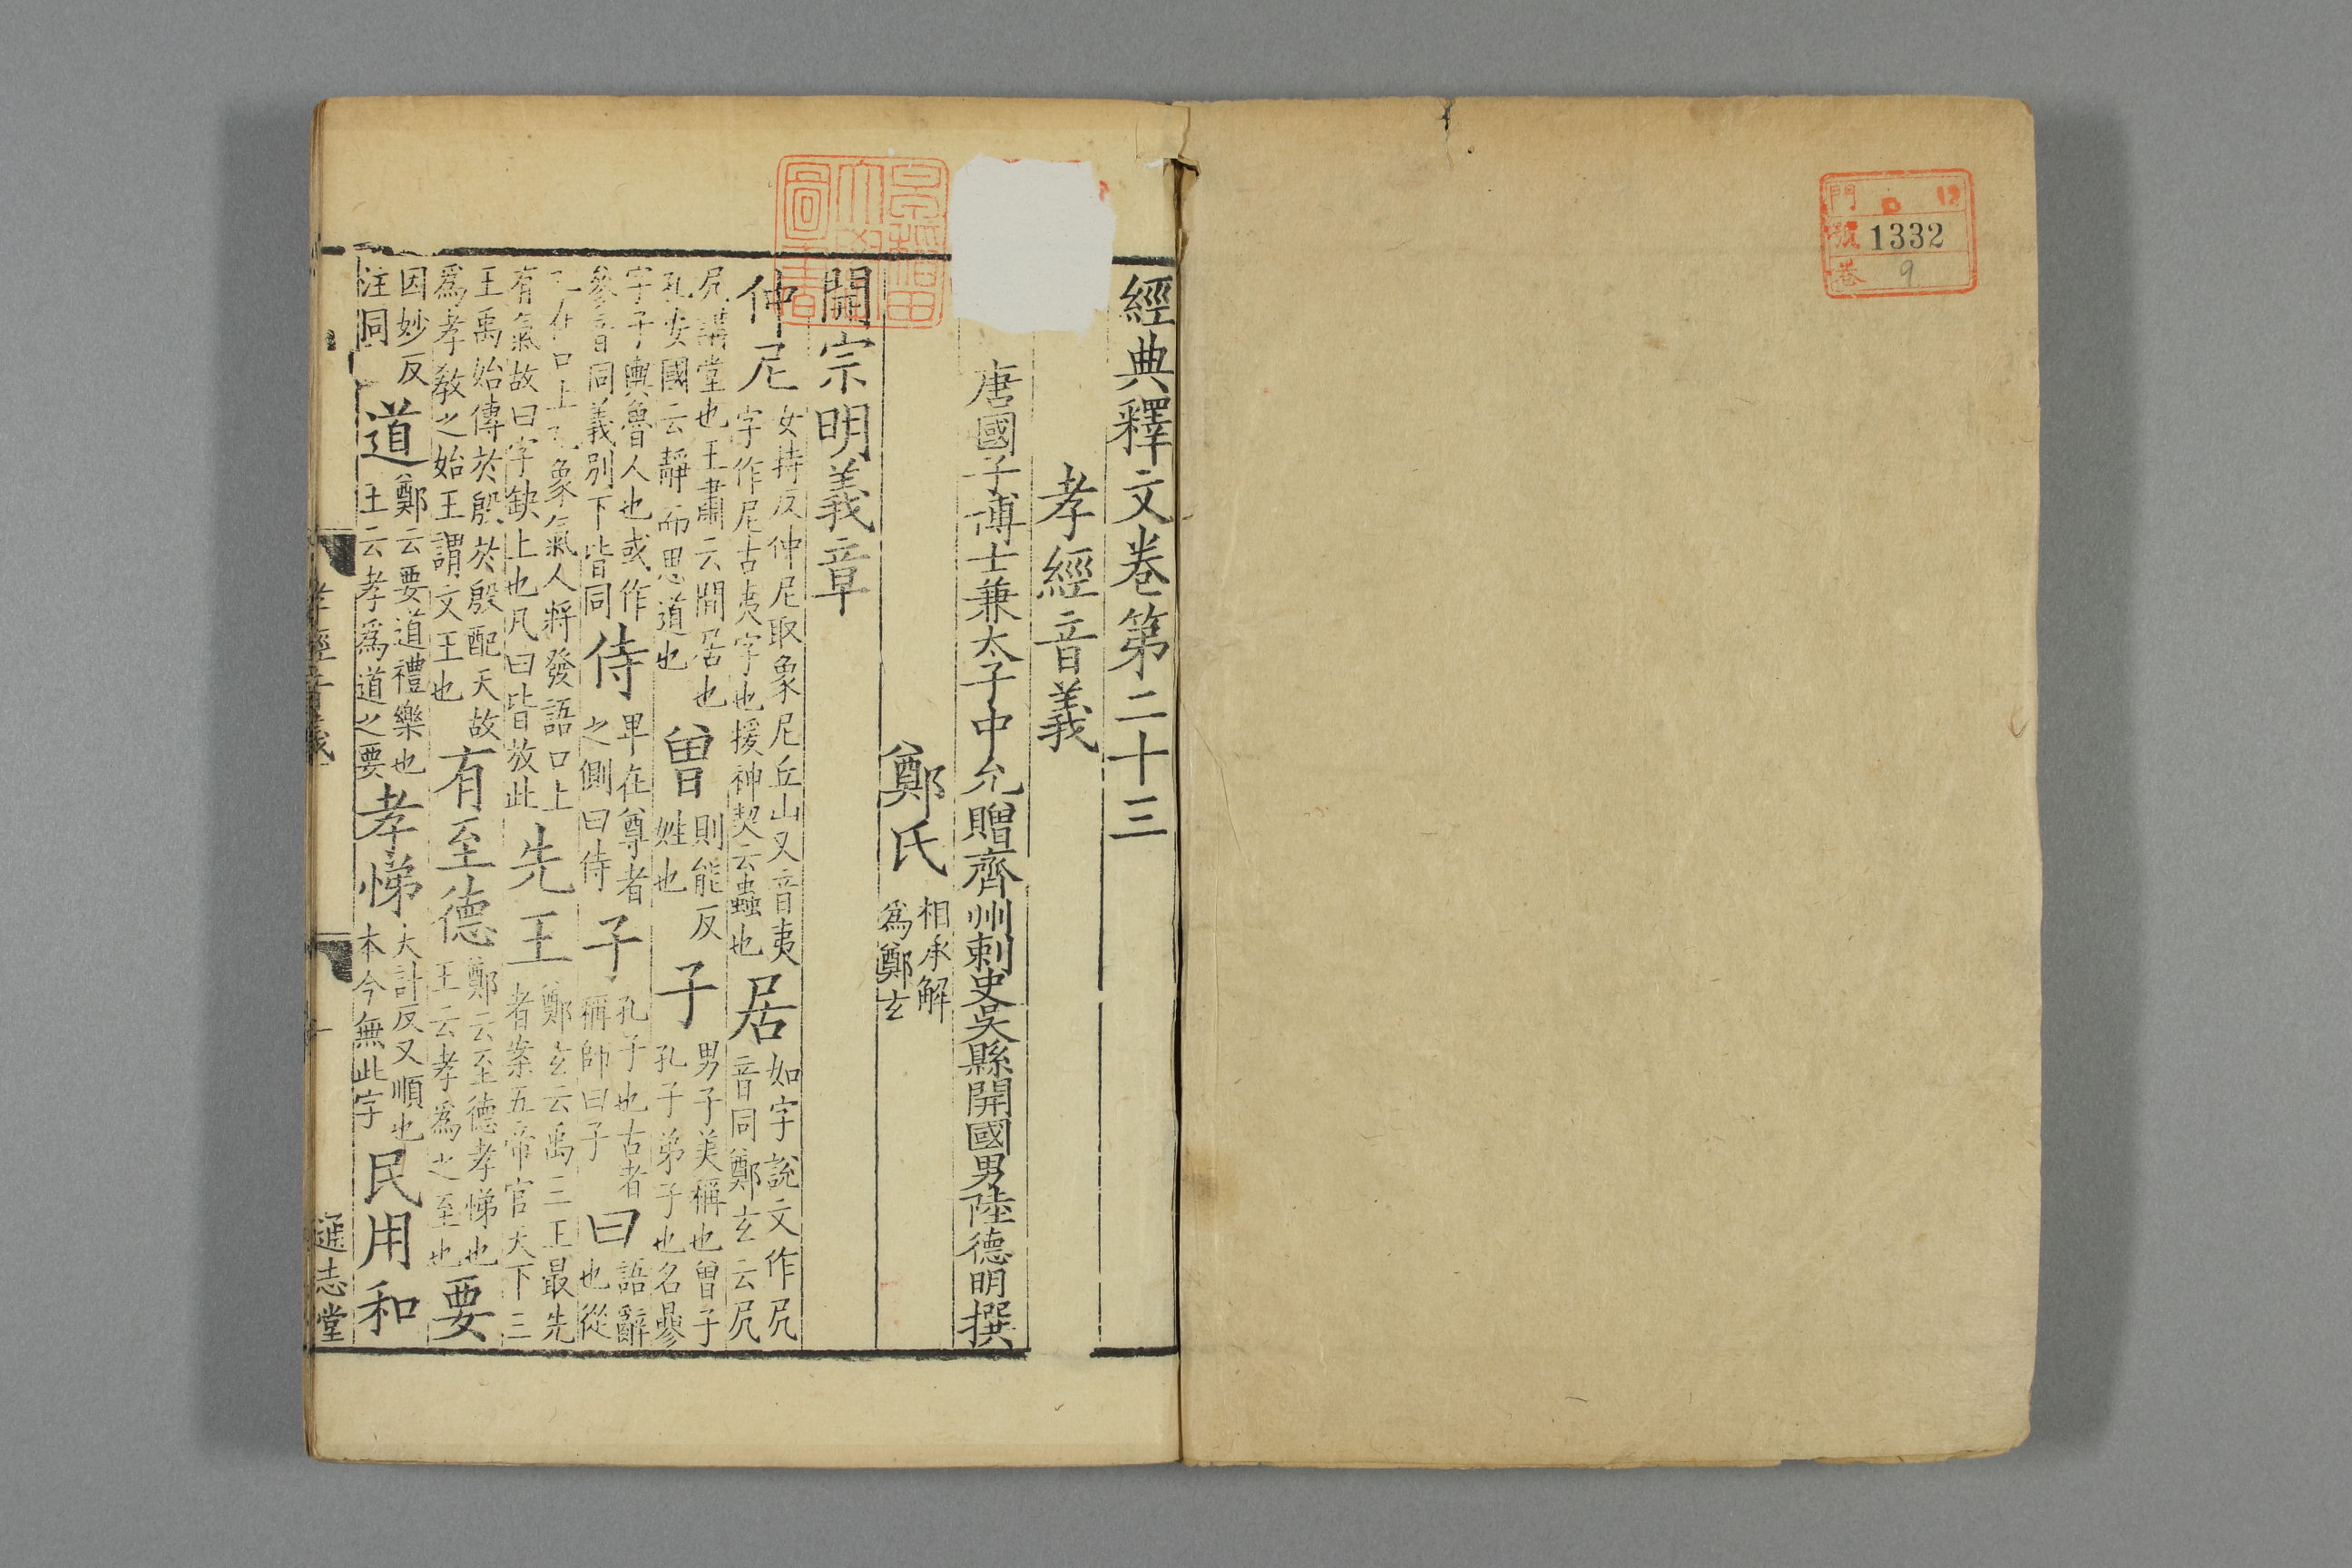 門 ロ 12
號 1332
巻 9
經典釋文卷第二十三
孝經音義
唐國子博士兼太子中允贈齊州刺史吳縣開國男陸德明撰
鄭氏 相承解
爲鄭玄
開宗明義章
仲尼 女持反仲尼取象尼丘山又音夷
字作𡰥古夷字也援神契云蟲也 居 如字說文作凥
音同鄭玄云凥
凥講堂也王肅云閒居也
孔安國云靜而思道也 曾 則能反
姓也 子 男子美稱也曾子
孔子弟子也名曑
字子輿魯人也或作
參音同義別下皆同 侍 卑在尊者
之側曰侍 子 孔子也古者
稱師曰子 曰 語辭
也從
口上象氣人將發語口上
有氣故曰字缺上也凡曰皆放此 先王 鄭玄云禹三王最先
者案五帝官天下三
王禹始傳於殷於殷配天故
爲孝教之始王謂文王也 有至德 鄭云至德孝悌也
王云孝爲之至也 要
因妙反
注同 道 鄭云要道禮樂也
王云孝爲道之要 孝悌 大計反又順也
本今無此字 民用和
孝經音義
通志堂